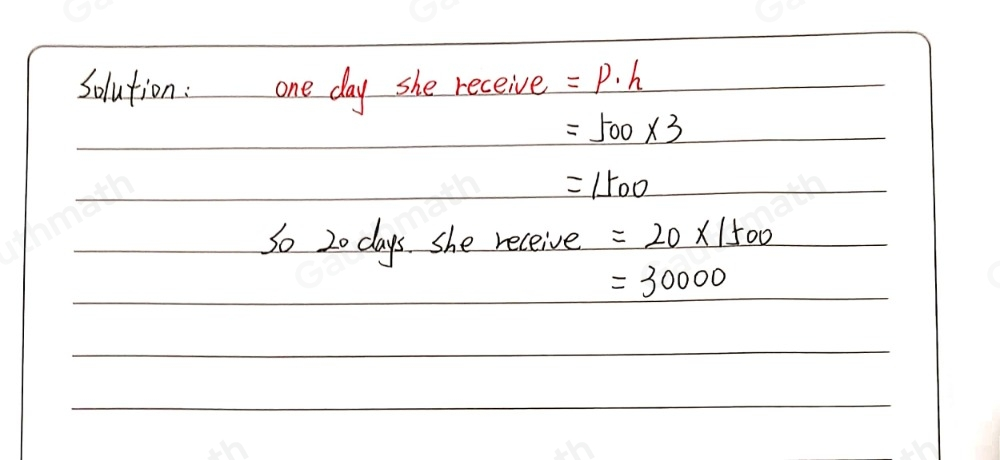 Solution: one day she receive = P·h
= 500 × 3
= 1500
So 20 days. she receive = 20 × 1500
= 30000